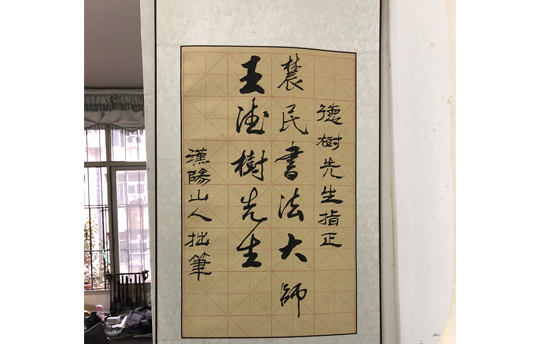 德樹先生指正
農民書法大師
王德樹先生
漢陽山人拙筆